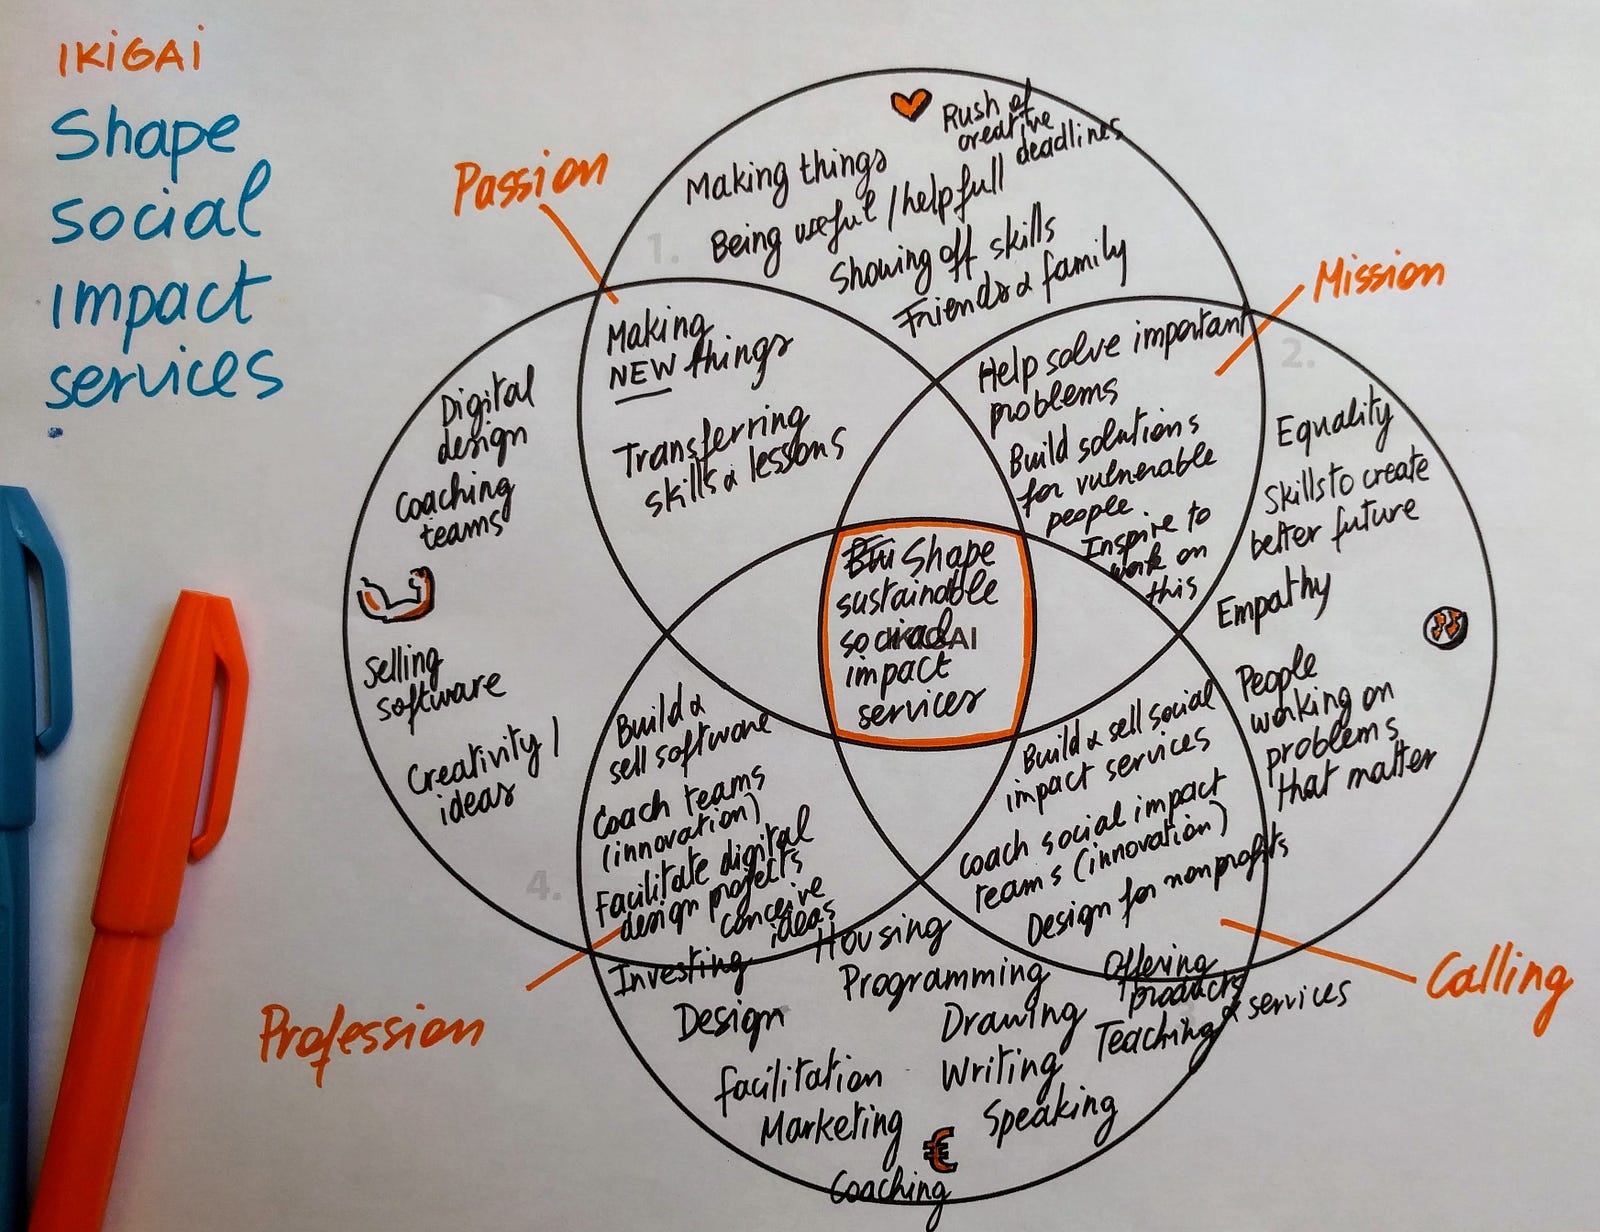 IKIGAI
Shape
social
impact
services
Passion
Mission
Profession
Calling
1.
Rush of
creative
deadlines
Making things
Being useful / helpfull
Showing off skills
Friends & family
Making
NEW things
Transferring
skills & lessons
2.
Help solve important
problems
Build solutions
for vulnerable
people
Inspire to
work on
this
Equality
Skills to create
better future
Empathy
People
working on
problems
that matter
Digital
design
Coaching
teams
Selling
software
Creativity /
ideas
Shape
sustainable
social
impact
services
IKIGAI
4.
Build &
sell software
Coach teams
(innovation)
Facilitate digital
design projects
conceive
ideas
Build & sell social
impact services
Coach social impact
teams (innovation)
Design for nonprofits
Investing
Housing
Programming
Offering
products
& services
Design
Drawing
Teaching
Facilitation
Writing
Marketing
Speaking
€
Coaching